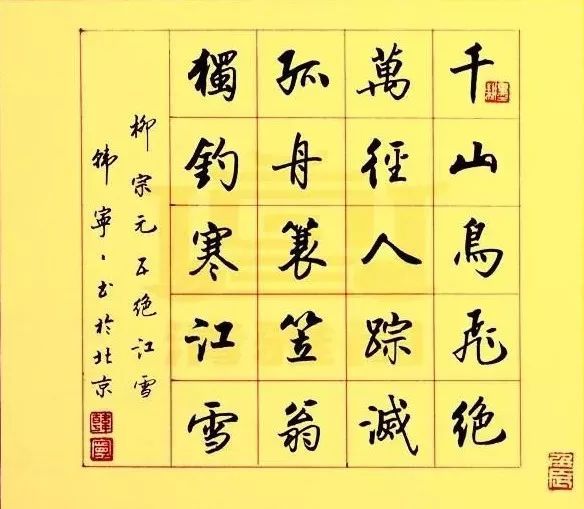 千山鳥飛絶
萬徑人踪滅
孤舟簑笠翁
獨釣寒江雪
柳宗元五绝江雪
韩寧丶书於北京
韓寧